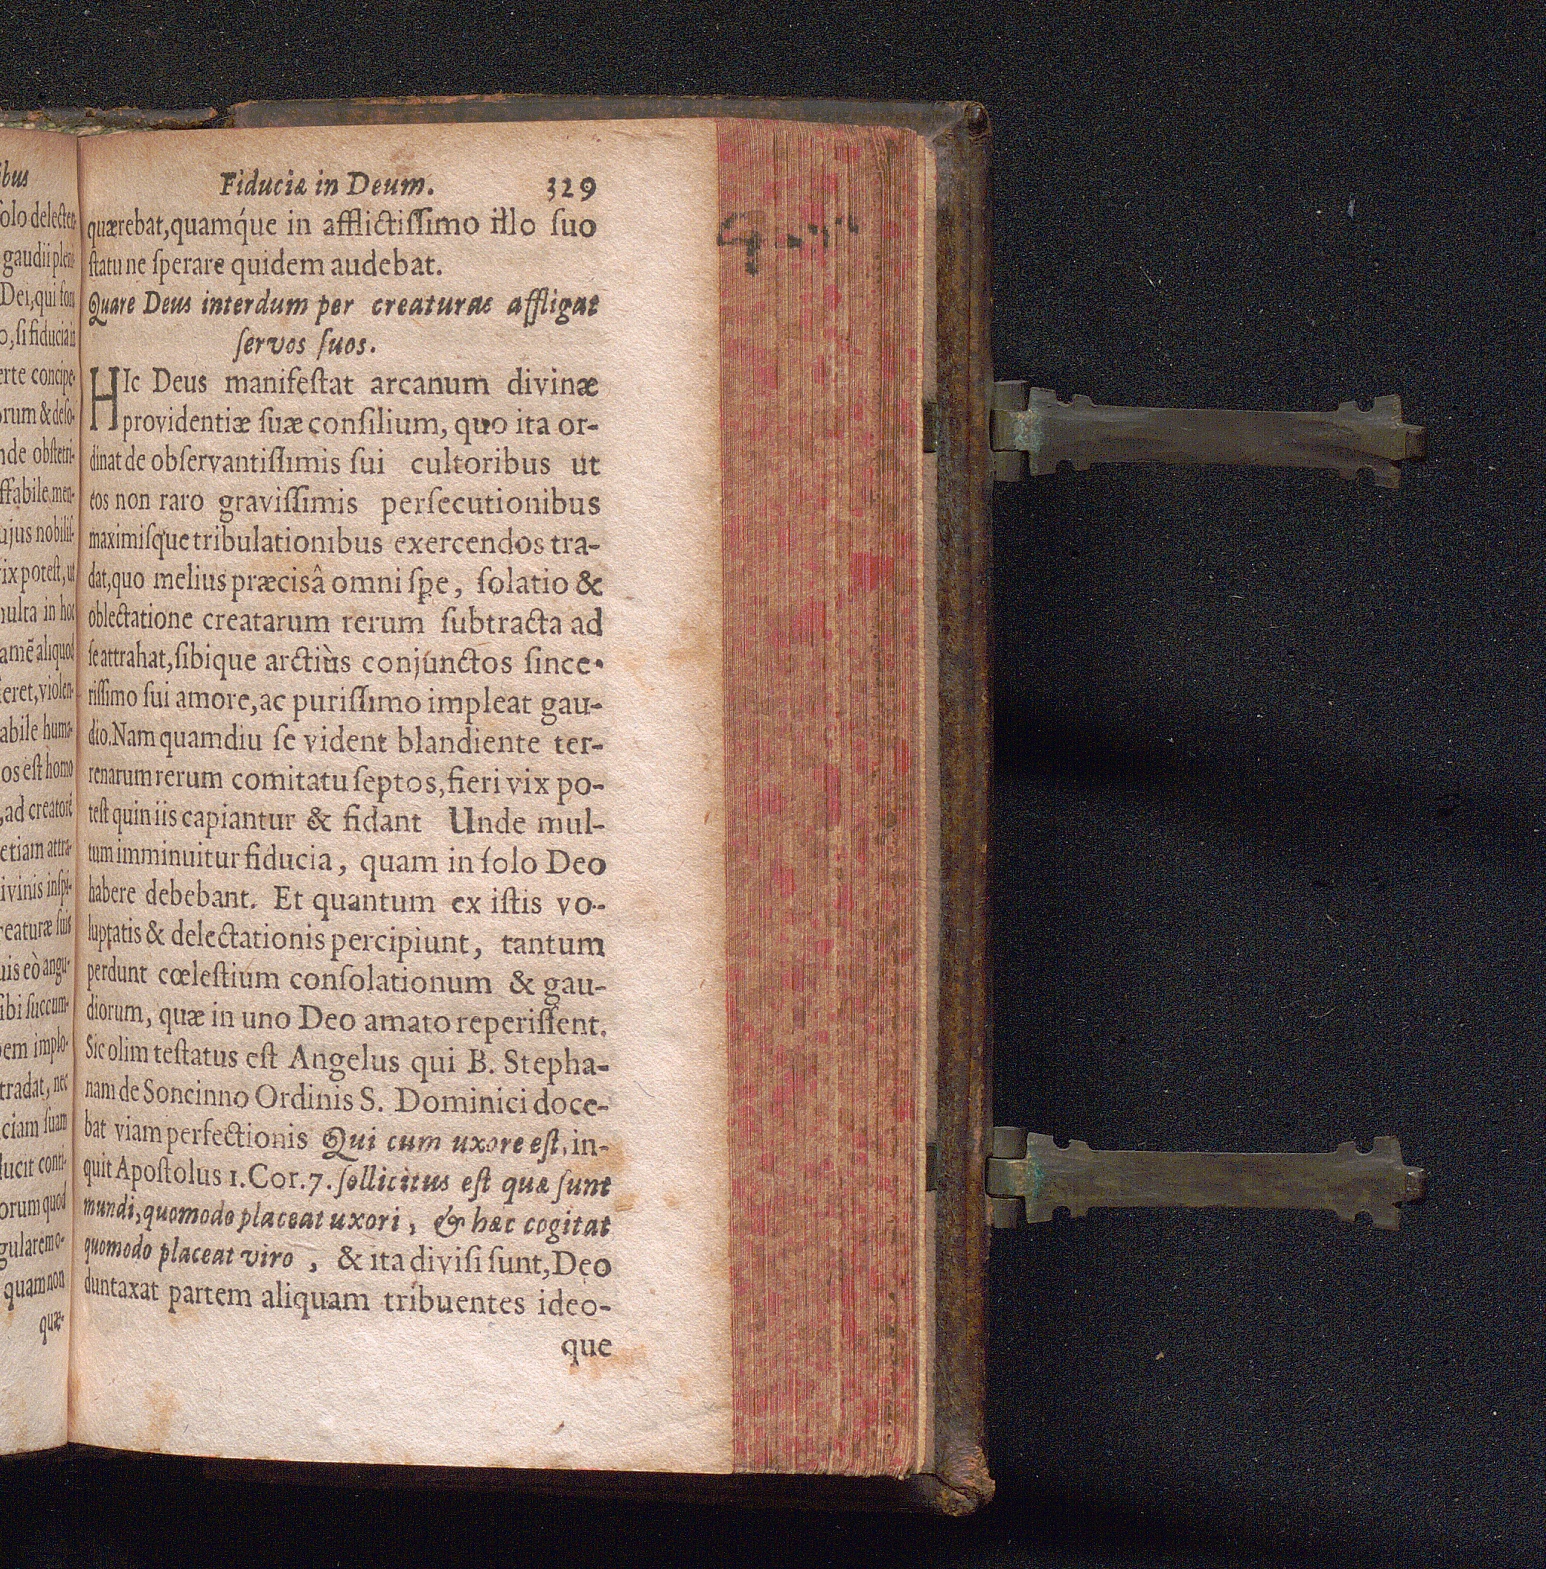 Fiduciæ in Deum. 329
quærebat, quamq́ue in afflictissimo illo suo
statu ne sperare quidem audebat.
Quare Deus interdum per creaturas affligat
servos suos.
HIc Deus manifestat arcanum divinæ
providentiæ suæ consilium, quo ita or-
dinat de observantissimis sui cultoribus ut
eos non raro gravissimis persecutionibus
maximisque tribulationibus exercendos tra-
dat, quo melius præcisâ omni spe, solatio &
oblectatione creatarum rerum subtracta ad
se attrahat, sibique arctiùs conjunctos since-
rissimo sui amore, ac purissimo impleat gau-
dio. Nam quamdiu se vident blandiente ter-
renarum rerum comitatu septos, fieri vix po-
test quin iis capiantur & fidant Unde mul-
tum imminuitur fiducia, quam in solo Deo
habere debebant. Et quantum ex istis vo-
luptatis & delectationis percipiunt, tantum
perdunt cœlestium consolationum & gau-
diorum, quæ in uno Deo amato reperissent.
Sic olim testatus est Angelus qui B. Stepha-
nam de Soncinno Ordinis S. Dominici doce-
bat viam perfectionis Qui cum uxore est, in-
quit Apostolus 1. Cor. 7. sollicitus est quæ sunt
mundi, quomodo placeat uxori, & hæc cogitat
quomodo placeat viro, & ita divisi sunt, Deo
duntaxat partem aliquam tribuentes ideo-
que
ibus
solo delecten-
gaudii plen
Dei, qui fon
o, si fiducia in
erte concipe-
orum & deso-
nde obstetri-
ffabile, men-
ujus nobilis-
ix potest, ut
multa in hoc
amē aliquod
eret, violen-
abile huma-
os est homo
, ad creatorē
etiam attra-
ivinis inspi-
reaturæ suis
uis eò angu-
ibi succum-
em implo-
tradat, nec
ciam suam
ducit conti-
orum quod
gularem o-
quam non
quæ-